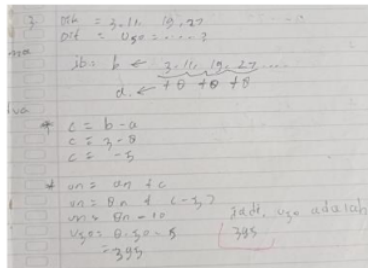 3 Dik = 3, 11, 19, 27
Dit = U50 = ..... ?
Jb = b ← 3, 11, 19, 27 ....
a ← +8 +8 +8
* c = b - a
c = 3 - 8
c = -5
* un = an + c
un = 8n + (-5)
un = 8n - 10
U50 = 8.50 - 5
= 395
Jadi, U50 adalah
395